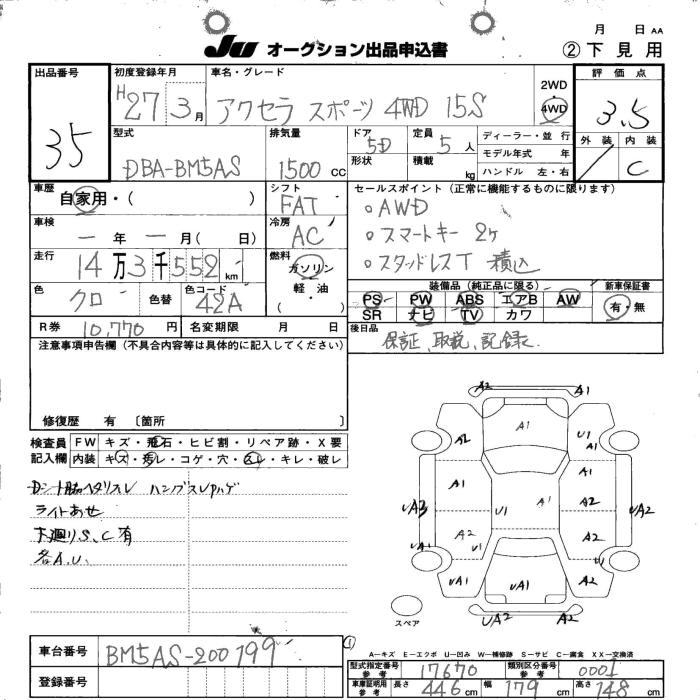 月 日 AA
JU オークション出品申込書
② 下見用
出品番号 35
初度登録年月 H27 3月
車名・グレード アクセラ スポーツ 4WD 15S
2WD 4WD
評価点 3.5
外装 / 内装 C
型式 DBA-BM5AS
排気量 1500 CC
ドア 5D
形状
定員 5 人
積載 kg
ディーラー・並行
モデル年式 年
ハンドル 左・右
車歴 自家用・( )
シフト FAT
セールスポイント(正常に機能するものに限ります)
。AWD
。スマートキー 2ヶ
。スタッドレスT 積込
車検 ー年ー月( 日)
冷房 AC
走行 14万3千552km
燃料 ガソリン 軽油・( )
色 クロ 色替
色コード 42A
装備品(純正品に限る)
PS PW ABS エアB AW
SR ナビ TV カワ
新車保証書 有・無
R券 10,770 円
名変期限 月 日
後日品 保証、取説、記録に
注意事項申告欄(不具合内容等は具体的に記入してください)
修復歴 有 〔箇所 〕
検査員記入欄
FW キズ・飛石・ヒビ割・リペア跡・X要
内装 キズ・汚レ・コゲ・穴・スレ・キレ・破レ
ライトあせ
下廻りS、C有
各A.U.
A2 A1
A2 A1 U1
A1 A1
UA3 U1 A1 A2 UA2
A2 U1 A2
UA1 UA1 A2
UA2 A2
スペア
車台番号 BM5AS-200799
登録番号
①
A－キズ E－エクボ U－凹み W－補修跡 S－サビ C－腐食 XX－交換済
型式指定番号 参考 17670
類別区分番号 参考 0001
車庫証明用 参考 長さ 446 cm 幅 179 cm 高さ 148 cm